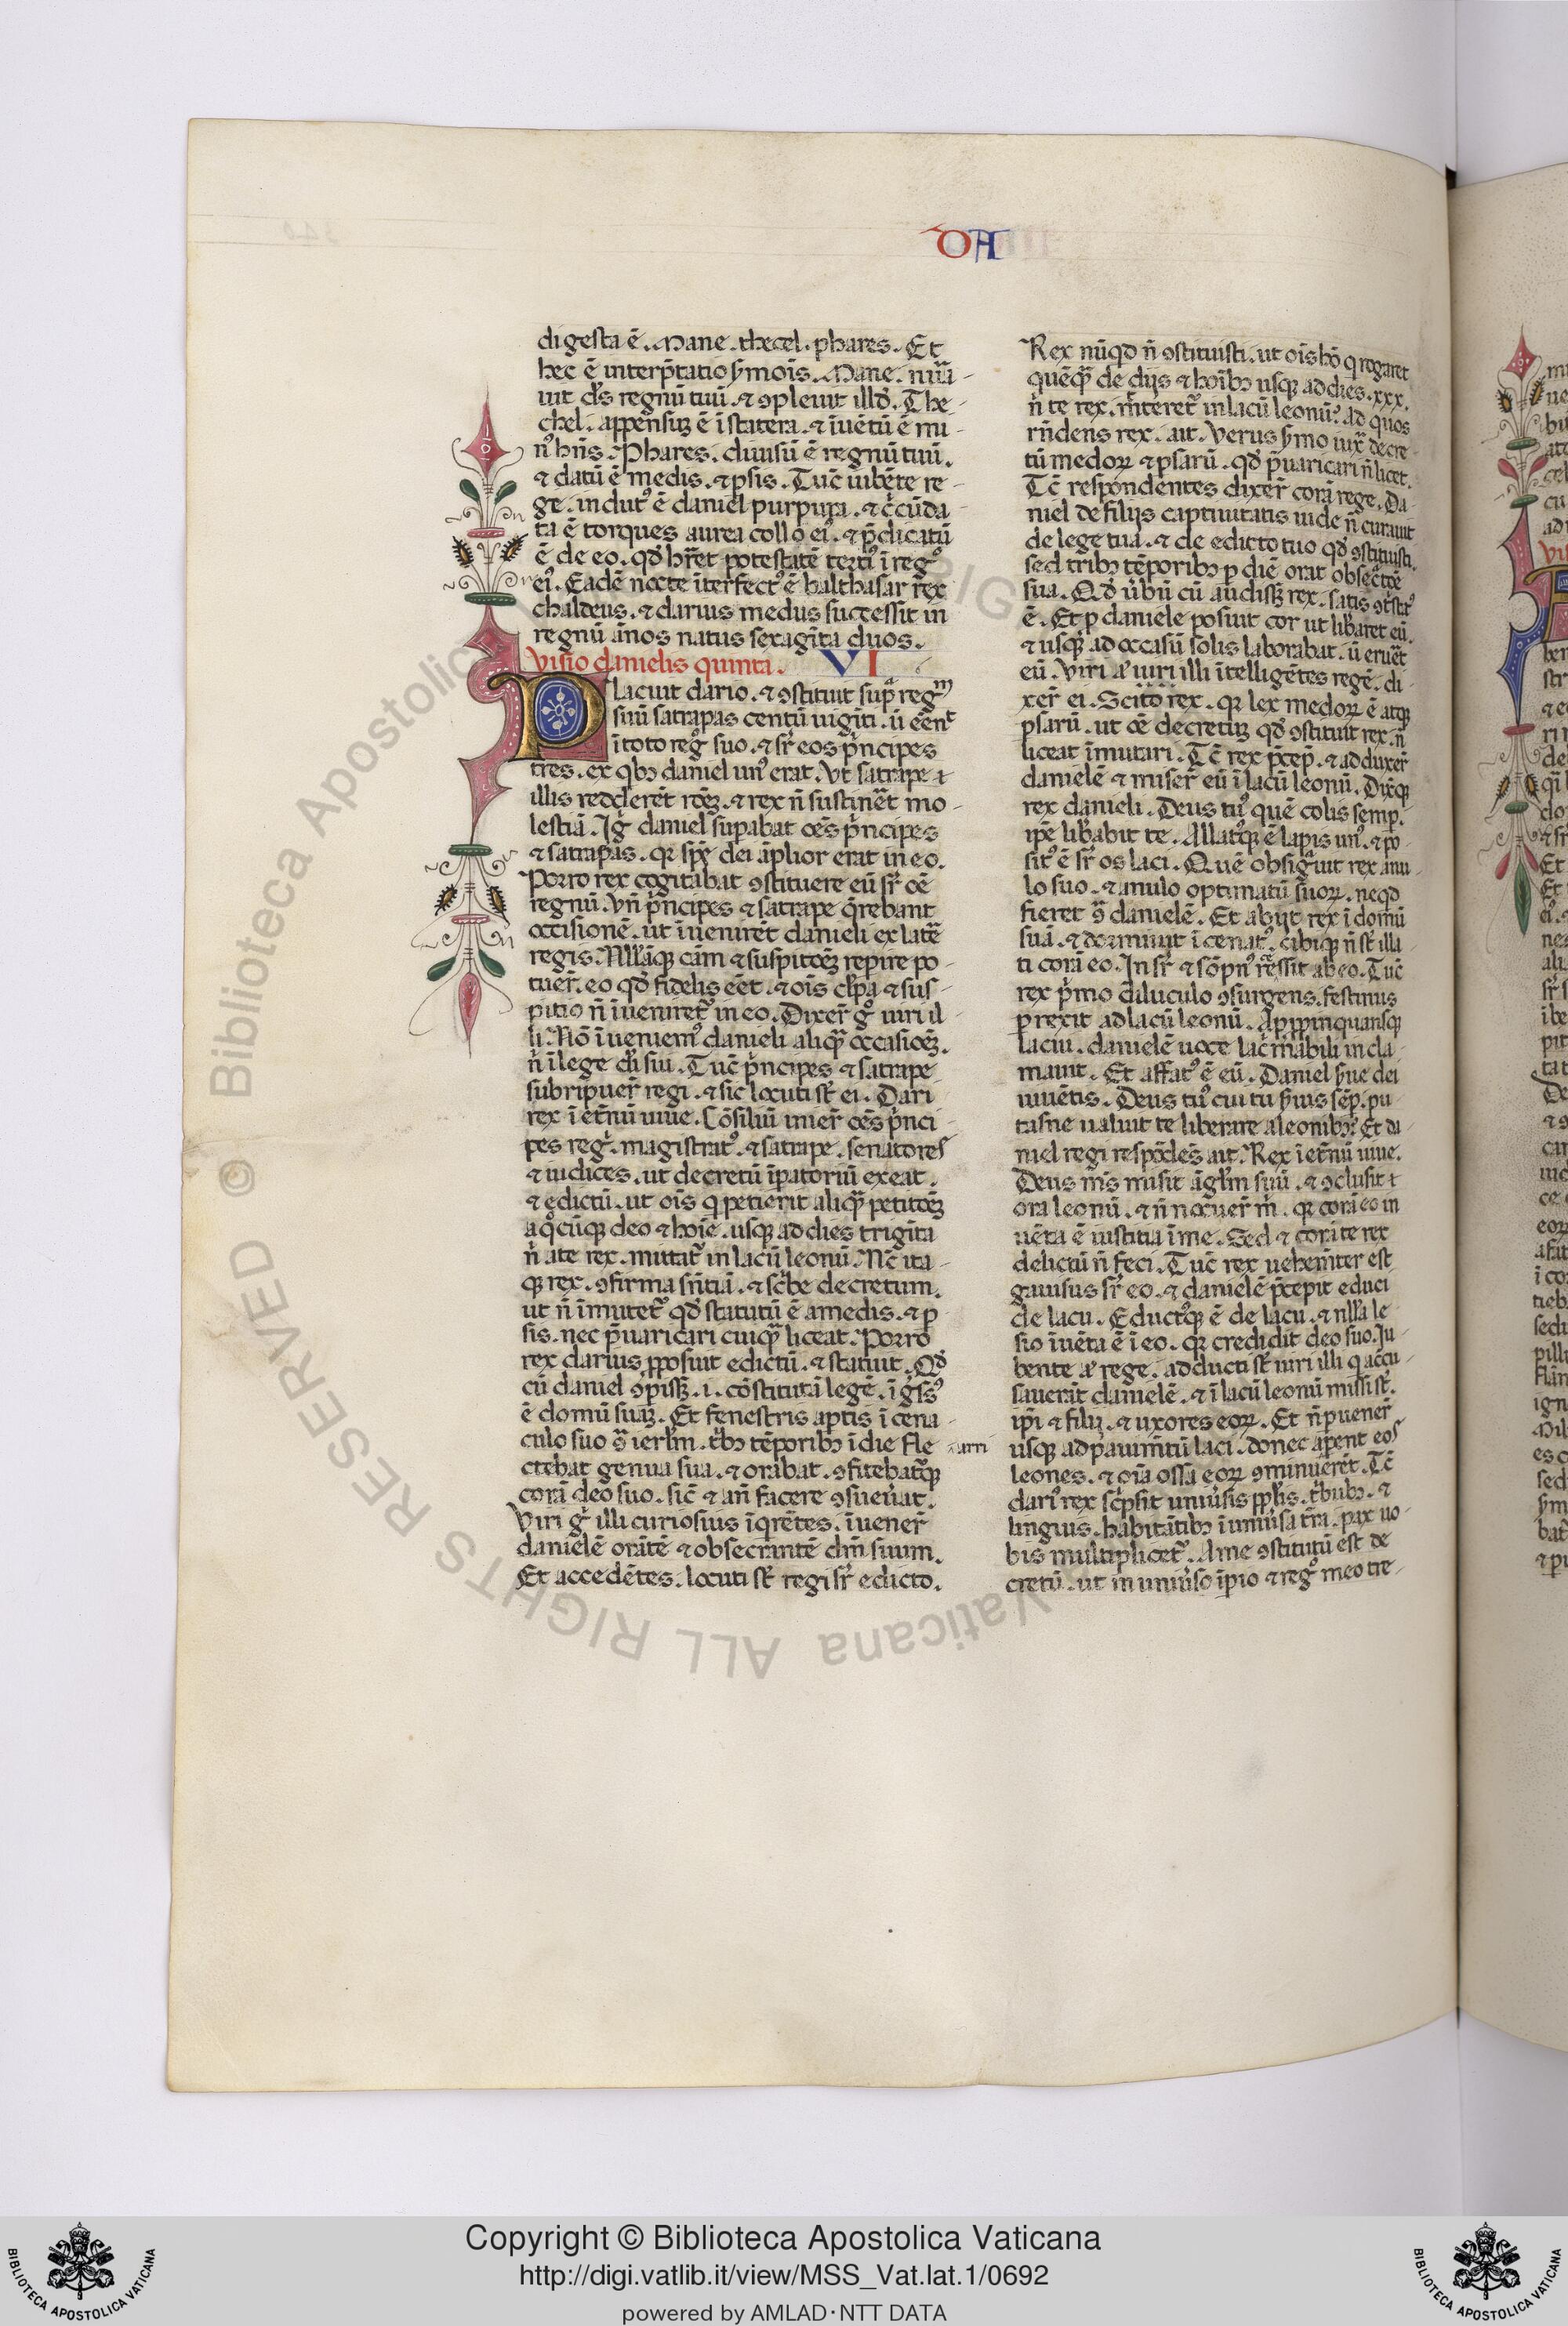 DA
digesta ē. Mane. thecel. phares. Et
hec ē interp̄tatio s̾mois̄. Mane. nūa-
uit ds̄ regnū tuū. ⁊ ꝯpleuit illđ. The-
chel. appensuʒ ē ī statera. ⁊ īuētū ē mi-
nꝰ hn̄s. Phares. diuisū ē regnū tuū.
⁊ datū ē medis. ⁊ ꝑsis. Tuc̄ iubēte re-
ge. indutꝰ ē daniel purpura. ⁊ c̄cūda
ta ē torques aurea collo eiꝰ. ⁊ p̄dicatū
ē de eo. qđ hr̄et potestatē tertiꝰ ī regͦ
eiꝰ. Eadē nocte īterfectꝰ ē balthasar rex
chaldeus. ⁊ darius medus successit in
regnū ānos natus sexagīta duos.
Visio danielis quinta. VI
Placuit dario. ⁊ ꝯstituit sup̄ regᵐ
suū satrapas centū uigīti. ū eēnt
ī toto regͦ suo. ⁊ sr̄ eos p̄ncipes
tres. ex qbꝫ daniel unꝰ erat. Vt satrape ⁊
illis redderēt rōeʒ. ⁊ rex n̄ sustinēt mo-
lestiā. Ig̾ daniel supabat oēs p̄ncipes
⁊ satrapas. qꝛ sp̄c dei āplior erat in eo.
Porro rex cogitabat ꝯstituere eū sr̄ oē
regnū. Vn̄ p̄ncipes ⁊ satrape q̄rebant
occisionē. ut īuenirēt danieli ex latē
regis. Nllāqꝫ cām ⁊ suspitōeʒ repire po-
tuer̄. eo qđ fidelis eēt. ⁊ ois̄ cl̄pa ⁊ sus-
pitio n̄ īueniret᷑ in eo. Dixer̄ gͦ uiri il-
li. Nō īueniemꝰ danieli aliqᷓ occasiōeʒ.
n̾ ī lege di̾ sui. Tuc̄ p̄ncipes ⁊ satrape
subripuer̄ regi. ⁊ sic locuti st̄ ei. Dari
rex ī et̄nū uiue. Cōsiliū inier̄ oēs p̄nci
pes reg̾. magistratꝰ. ⁊ satrape. senatores
⁊ iudices. ut decretū īpatoriū exeat.
⁊ edictū. ut ois̄ q petierit aliqᷓ petitōeʒ
a qͦcūqꝫ deo ⁊ hoīe. usqꝫ ad dies trigīta
n̾ a te rex. mittat᷑ in lacū leonū. Nc̄ ita-
qꝫ rex. ꝯfirma sn̄tiā. ⁊ sc̾be decretum.
ut n̄ īmutet᷑ qđ statutū ē a medis. ⁊ ꝑ
sis. nec p̄uaricari cuiqᷓ liceat. Porro
rex darius ꝓposuit edictū. ⁊ statuit. Qđ
cū daniel ꝯpissʒ. i. cōstitutā legē. īg̾ssꝰ
ē domū suaʒ. Et fenestris aptis ī cena-
culo suo ꝯᷓ ierl̄m. t̾bꝫ tēporibꝫ ī die fle
ctebat genua sua. ⁊ orabat. ꝯfitebat᷑qꝫ
corā deo suo. sic̄ ⁊ an̄ facere ꝯsueu̾at.
Viri g̾ illi curiosius īqrētes. īuener̄
danielē orātē ⁊ obsecrantē dm̄ suum.
Et accedētes. locuti st̄ regi sr̄ edicto.
Rex nūqđ n̄ ꝯstituisti. ut ois̄ hō q rogaret
quēqᷓ de dijs ⁊ hoībꝫ usqꝫ ad dies. xxx.
n̾ te rex. mitteret᷑ in lacū leonū? ad quos
rn̄dens rex. ait. Verus s̾mo iux̄ decre
tū medoꝝ ⁊ ꝑsarū. qđ p̄uaricari n̄ licet.
Tc̄ respondentes dixer̄ corā rege. Da-
niel de filijs captiuitatis iude n̄ curauit
de lege tua. ⁊ de edicto tuo qđ ꝯstituisti.
sed tribꝫ tēporibꝫ ꝑ diē orat obsec̄tōe
sua. Qđ u̾bū cū audissʒ rex. satis ꝯt̾statꝰ
ē. Et ꝑ daniele posuit cor ut lib̾aret eū.
⁊ usqꝫ ad occasū solis laborabat. ū erueēt
eū. Viri aͬ uiri illi ītelligētes regē. di-
xer̄ ei. Scito rex. qꝛ lex medoꝝ ē atqꝫ
ꝑsarū. ut oē decretuʒ qđ ꝯstituit rex. n̄
liceat īmutari. Tc̄ rex p̄cep̄. ⁊ adduxer̄
danielē ⁊ miser̄ eū ī lacū leonū. Dixqꝫ
rex danieli. Deus tuꝰ quē colis semp̄.
ip̄e lib̾abit te. Allatꝰqꝫ ē lapis unꝰ. ⁊ po-
sitꝰ ē sr̄ os laci. Quē obsigᷓuit rex anu-
lo suo. ⁊ anulo optimatū suoꝝ. ne qđ
fieret ꝯᷓ danielē. Et abijt rex ī domū
suā. ⁊ dormiuit īcenatꝰ. cibiqꝫ n̄ st̄ illa-
ti corā eo. Insr̄ ⁊ sōpnꝰ rc̄essit ab eo. Tuc̄
rex p̾mo diluculo ꝯsurgens. festinus
ꝑrexit ad lacū leonū. Appīnquansqꝫ
lacui. danielē uoce lac̄mabili incla-
mauit. Et affatꝰ ē eū. Daniel s̾ue dei
uiuētis. Deus tuꝰ cui tu s̾uis sēp̄. pu-
tasne ualuit te liberare a leonibꝫ? Et da-
niel regi respōdēs ait. Rex ī et̄nū uiue.
Deus ms̄ misit āgl̄m suū. ⁊ ꝯclusit ⁊
ora leonū. ⁊ n̄ nocuer̄ m̾. qꝛ corā eo in
uēta ē iustitia ī me. Sed ⁊ corā te rex
delictū n̄ feci. Tuc̄ rex uehemt̄er est
gauisus sr̄ eo. ⁊ danielē p̄cepit educi
de lacu. Eductꝰqꝫ ē de lacu. ⁊ nll̄a le
sio īuēta ē ī eo. qꝛ credidit deo suo. Iu-
bente aͬ rege. adducti st̄ uiri illi q accu-
sauerāt danielē. ⁊ ī lacū leonū missi st̄.
ip̄i ⁊ filij. ⁊ uxores eoꝝ. Et n̄ puener̄
usqꝫ ad pauimt̄ū laci. donec arꝑent eos
leones. ⁊ oīa ossa eoꝝ ꝯminuerēt. Tc̄
dariꝰ rex sc̾psit uniu̾sis ppl̄is. t̾bubꝫ. ⁊
linguis. habitātibꝫ ī uniu̾sa tr̄a. pax uo-
bis multiplicet᷑. A me ꝯstitutū est de
cretū. ut in uniu̾so īpio ⁊ regͦ meo tre-
Copyright © Biblioteca Apostolica Vaticana
http://digi.vatlib.it/view/MSS_Vat.lat.1/0692
powered by AMLAD·NTT DATA
BIBLIOTECA APOSTOLICA VATICANA
BIBLIOTECA APOSTOLICA VATICANA
Biblioteca Apostolica Vaticana ALL RIGHTS RESERVED ©